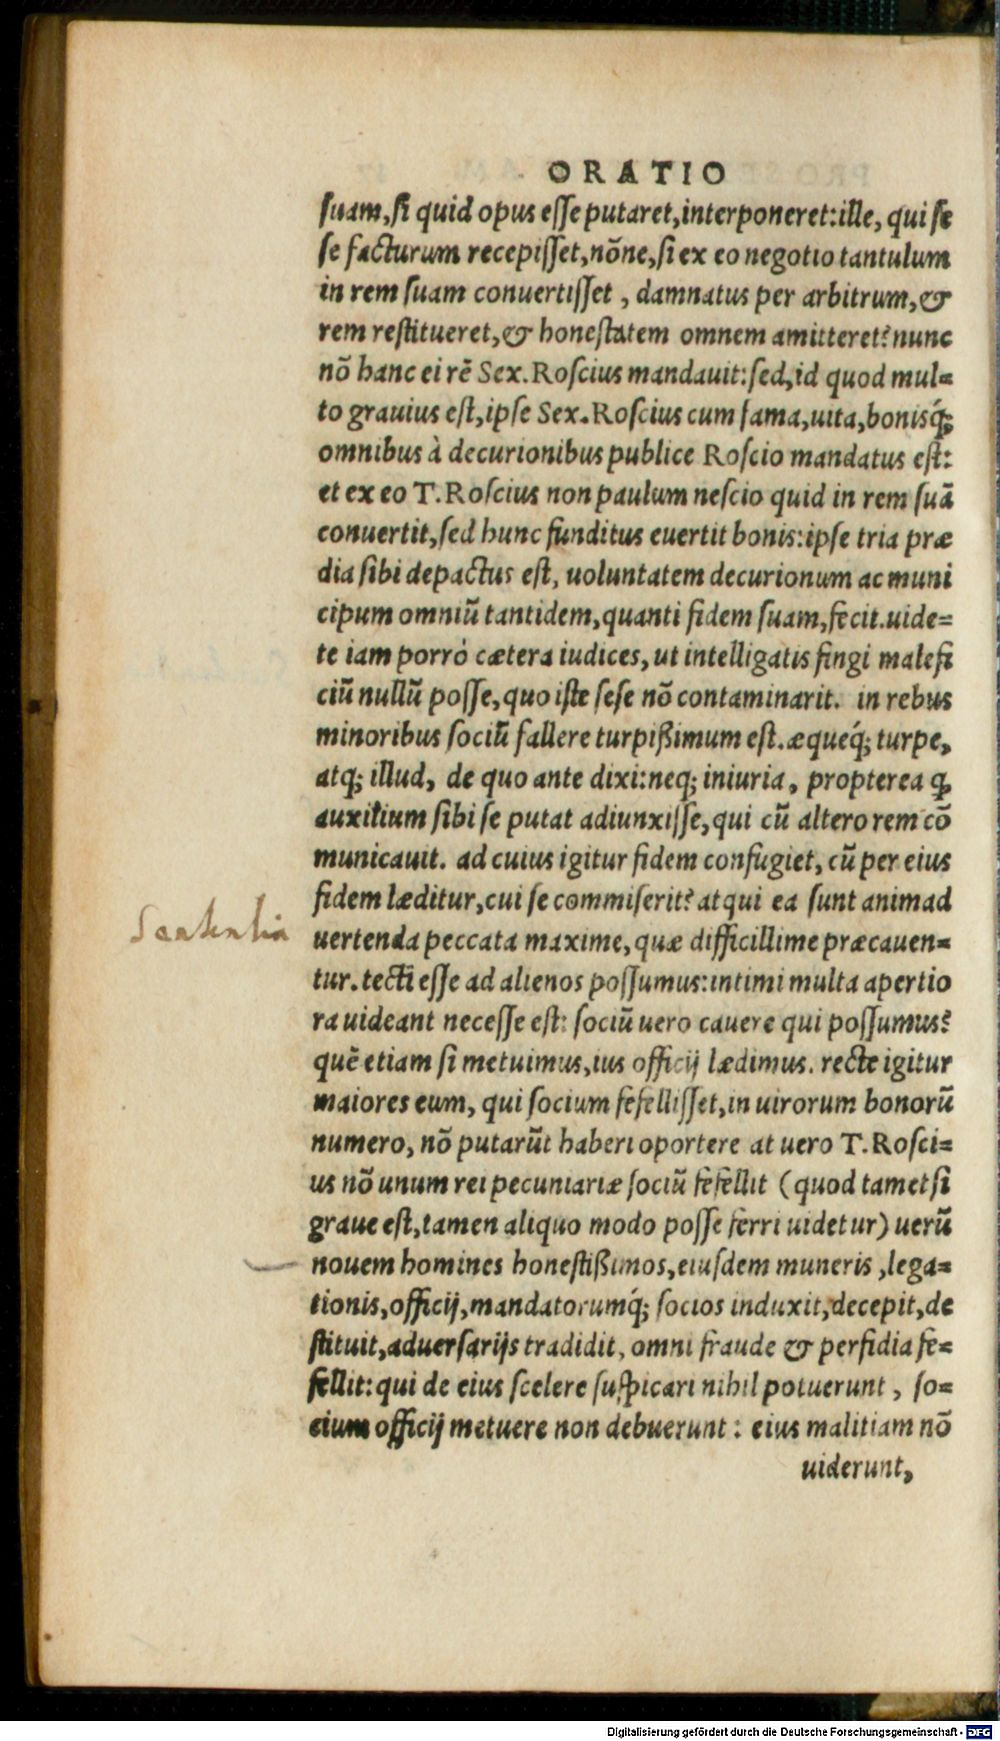 ORATIO
suam, si quid opus esse putaret, interponeret: ille, qui se
se facturum recepisset, nōne, si ex eo negotio tantulum
in rem suam conuertisset , damnatus per arbitrum, &
rem restitueret, & honestatem omnem amitteret? nunc
nō hanc ei rē Sex. Roscius mandauit: sed, id quod mul=
to grauius est, ipse Sex. Roscius cum fama, uita, bonisq́;
omnibus à decurionibus publice Roscio mandatus est:
et ex eo T. Roscius non paulum nescio quid in rem suā
conuertit, sed hunc funditus euertit bonis: ipse tria præ
dia sibi depactus est, uoluntatem decurionum ac muni
cipum omniū tantidem, quanti fidem suam, fecit. uide=
te iam porrò cætera iudices, ut intelligatis fingi malefi
ciū nullū posse, quo iste sese nō contaminarit. in rebus
minoribus sociū fallere turpißimum est. æqueq́; turpe,
atq; illud, de quo ante dixi: neq; iniuria, propterea ꝙ
auxilium sibi se putat adiunxisse, qui cū altero rem cō
municauit. ad cuius igitur fidem confugiet, cū per eius
fidem læditur, cui se commiserit? atqui ea sunt animad
Sententia
uertenda peccata maxime, quæ difficillime præcauen=
tur. tecti esse ad alienos possumus: intimi multa apertio
ra uideant necesse est: sociū uero cauere qui possumus?
quē etiam si metuimus, ius officij lædimus. recte igitur
maiores eum, qui socium fefellisset, in uirorum bonorū
numero, nō putarūt haberi oportere at uero T. Rosci=
us nō unum rei pecuniariæ sociū fefellit (quod tametsi
graue est, tamen aliquo modo posse ferri uidetur) uerū
nouem homines honestißimos, eiusdem muneris , lega=
tionis, officij, mandatorumq́; socios induxit, decepit, de
stituit, aduersarijs tradidit, omni fraude & perfidia fe=
fellit: qui de eius scelere suspicari nihil potuerunt , so=
cium officij metuere non debuerunt : eius malitiam nō
uiderunt,
Digitalisierung gefördert durch die Deutsche Forschungsgemeinschaft - DFG